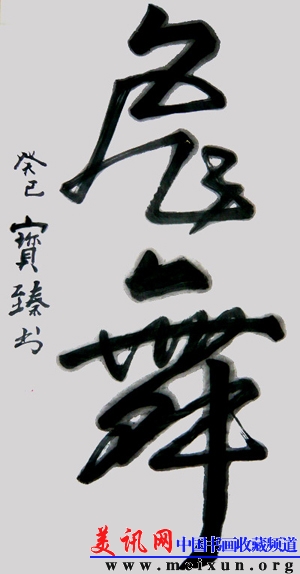 舞
癸巳 寶臻书
美讯网 中国书画收藏频道
www.meixun.org